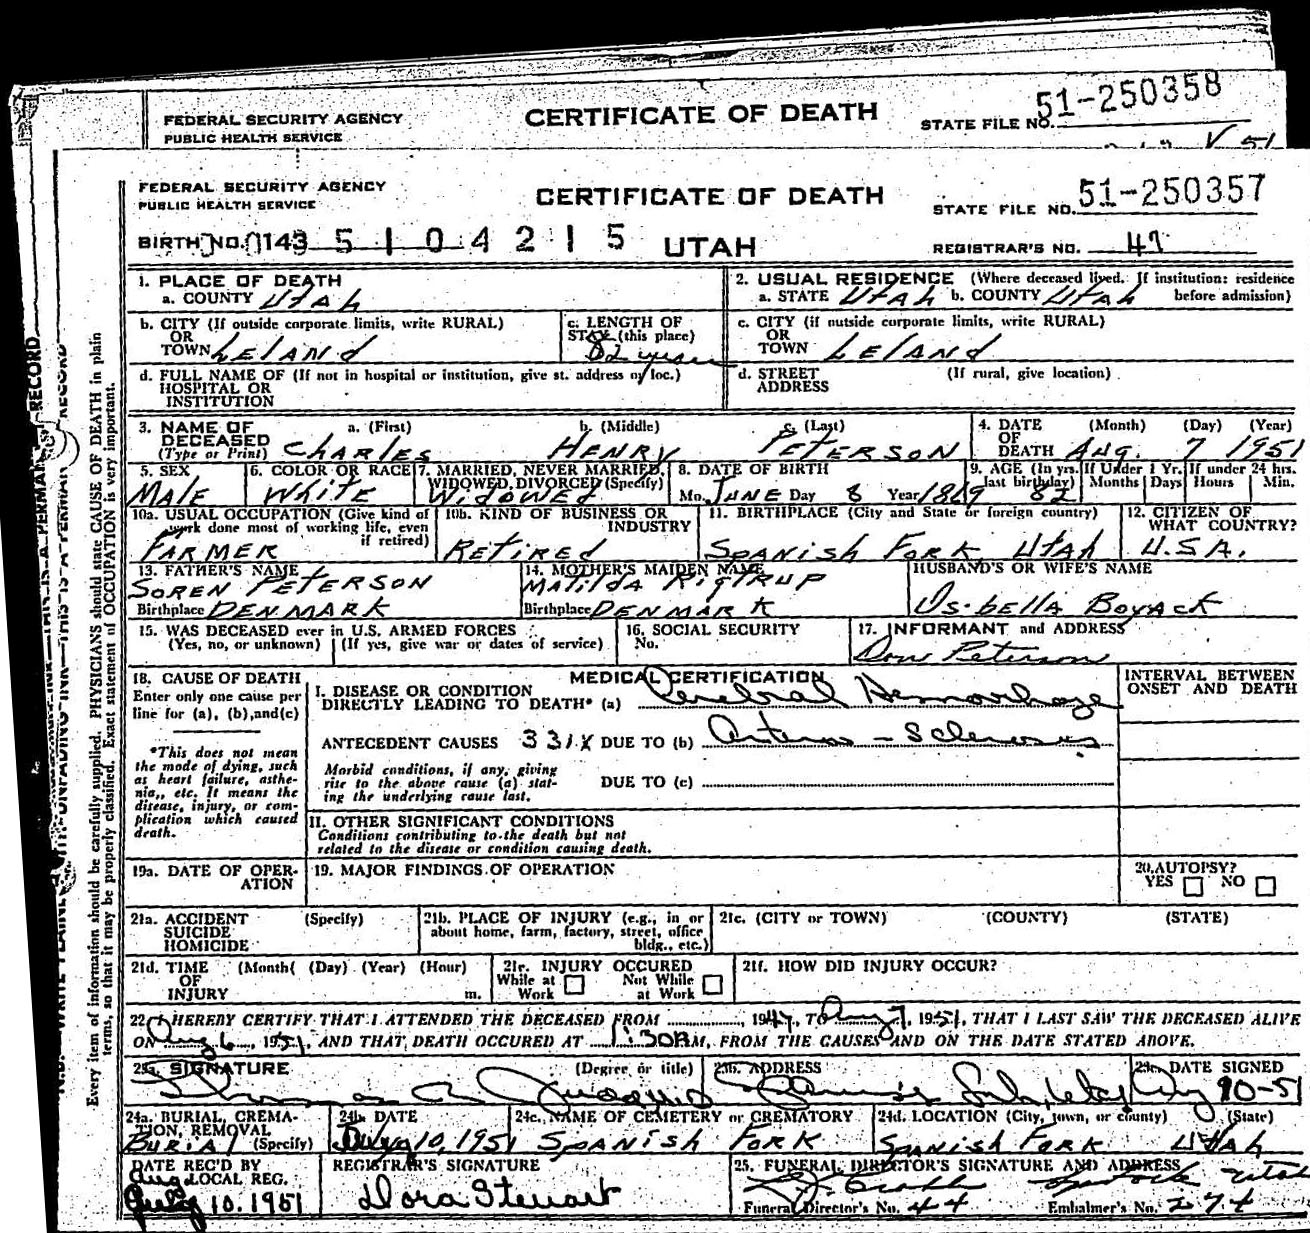 FEDERAL SECURITY AGENCY
PUBLIC HEALTH SERVICE
CERTIFICATE OF DEATH
STATE FILE NO. 51-250358
FEDERAL SECURITY AGENCY
PUBLIC HEALTH SERVICE
CERTIFICATE OF DEATH
STATE FILE NO. 51-250357
BIRTH NO. 143 5104215 UTAH
REGISTRAR'S NO. 47
1. PLACE OF DEATH
a. COUNTY Utah
2. USUAL RESIDENCE (Where deceased lived. If institution: residence before admission)
a. STATE Utah b. COUNTY Utah
b. CITY (If outside corporate limits, write RURAL)
OR
TOWN Leland
c. LENGTH OF
STAY (this place)
82 years
c. CITY (if outside corporate limits, write RURAL)
OR
TOWN Leland
d. FULL NAME OF (If not in hospital or institution, give st. address or loc.)
HOSPITAL OR
INSTITUTION
d. STREET
ADDRESS
(If rural, give location)
3. NAME OF
DECEASED
(Type or Print)
a. (First) b. (Middle) c. (Last)
Charles Henry Peterson
4. DATE
OF
DEATH
(Month) (Day) (Year)
Aug. 7 1951
5. SEX
Male
6. COLOR OR RACE
White
7. MARRIED, NEVER MARRIED,
WIDOWED, DIVORCED (Specify)
Widowed
8. DATE OF BIRTH
Mo. June Day 8 Year 1869
9. AGE (In yrs.
last birthday) 82
If Under 1 Yr.
Months Days
If under 24 hrs.
Hours Min.
10a. USUAL OCCUPATION (Give kind of
work done most of working life, even
if retired)
Farmer
10b. KIND OF BUSINESS OR
INDUSTRY
Retired
11. BIRTHPLACE (City and State or foreign country)
Spanish Fork, Utah
12. CITIZEN OF
WHAT COUNTRY?
U.S.A.
13. FATHER'S NAME
Soren Peterson
Birthplace Denmark
14. MOTHER'S MAIDEN NAME
Matilda Rigtrup
Birthplace Denmark
HUSBAND'S OR WIFE'S NAME
Boyack
15. WAS DECEASED ever in U.S. ARMED FORCES
(Yes, no, or unknown) (If yes, give war or dates of service)
16. SOCIAL SECURITY
No.
17. INFORMANT and ADDRESS
Don Peterson
18. CAUSE OF DEATH
Enter only one cause per
line for (a), (b), and (c)
*This does not mean
the mode of dying, such
as heart failure, asthe-
nia,, etc. It means the
disease, injury, or com-
plication which caused
death.
MEDICAL CERTIFICATION
I. DISEASE OR CONDITION
DIRECTLY LEADING TO DEATH* (a) Cerebral Hemorrhage
ANTECEDENT CAUSES 331X DUE TO (b) Arterio-Sclerosis
Morbid conditions, if any, giving
rise to the above cause (a) stat-
ing the underlying cause last.
DUE TO (c)
II. OTHER SIGNIFICANT CONDITIONS
Conditions contributing to the death but not
related to the disease or condition causing death.
INTERVAL BETWEEN
ONSET AND DEATH
19a. DATE OF OPER-
ATION
19. MAJOR FINDINGS OF OPERATION
20. AUTOPSY?
YES NO
21a. ACCIDENT (Specify)
SUICIDE
HOMICIDE
21b. PLACE OF INJURY (e.g., in or
about home, farm, factory, street, office
bldg., etc.)
21c. (CITY or TOWN) (COUNTY) (STATE)
21d. TIME (Month( (Day) (Year) (Hour)
OF
INJURY m.
21e. INJURY OCCURED
While at Work Not While at Work
21f. HOW DID INJURY OCCUR?
22. I HEREBY CERTIFY THAT I ATTENDED THE DECEASED FROM 1947, TO Aug 7, 1951, THAT I LAST SAW THE DECEASED ALIVE
ON Aug 6, 1951, AND THAT DEATH OCCURED AT 1:30AM, FROM THE CAUSES AND ON THE DATE STATED ABOVE.
SIGNATURE (Degree or title)
Thomas
23b. ADDRESS
23c. DATE SIGNED
Aug 10-51
24a. BURIAL, CREMA-
TION, REMOVAL
(Specify)
Burial
24b. DATE
Aug 10, 1951
24c. NAME OF CEMETERY or CREMATORY
Spanish Fork
24d. LOCATION (City, town, or county) (State)
Spanish Fork Utah
DATE REC'D BY
LOCAL REG.
Aug
July 10. 1951
REGISTRAR'S SIGNATURE
Dora Stewart
25. FUNERAL DIRECTOR'S SIGNATURE AND ADDRESS
Utah
Funeral Director's No. 44
Embalmer's No. 274
Every item of information should be carefully supplied. PHYSICIANS should state CAUSE OF DEATH in plain
terms, so that it may be properly classified. Exact statement of OCCUPATION is very important.